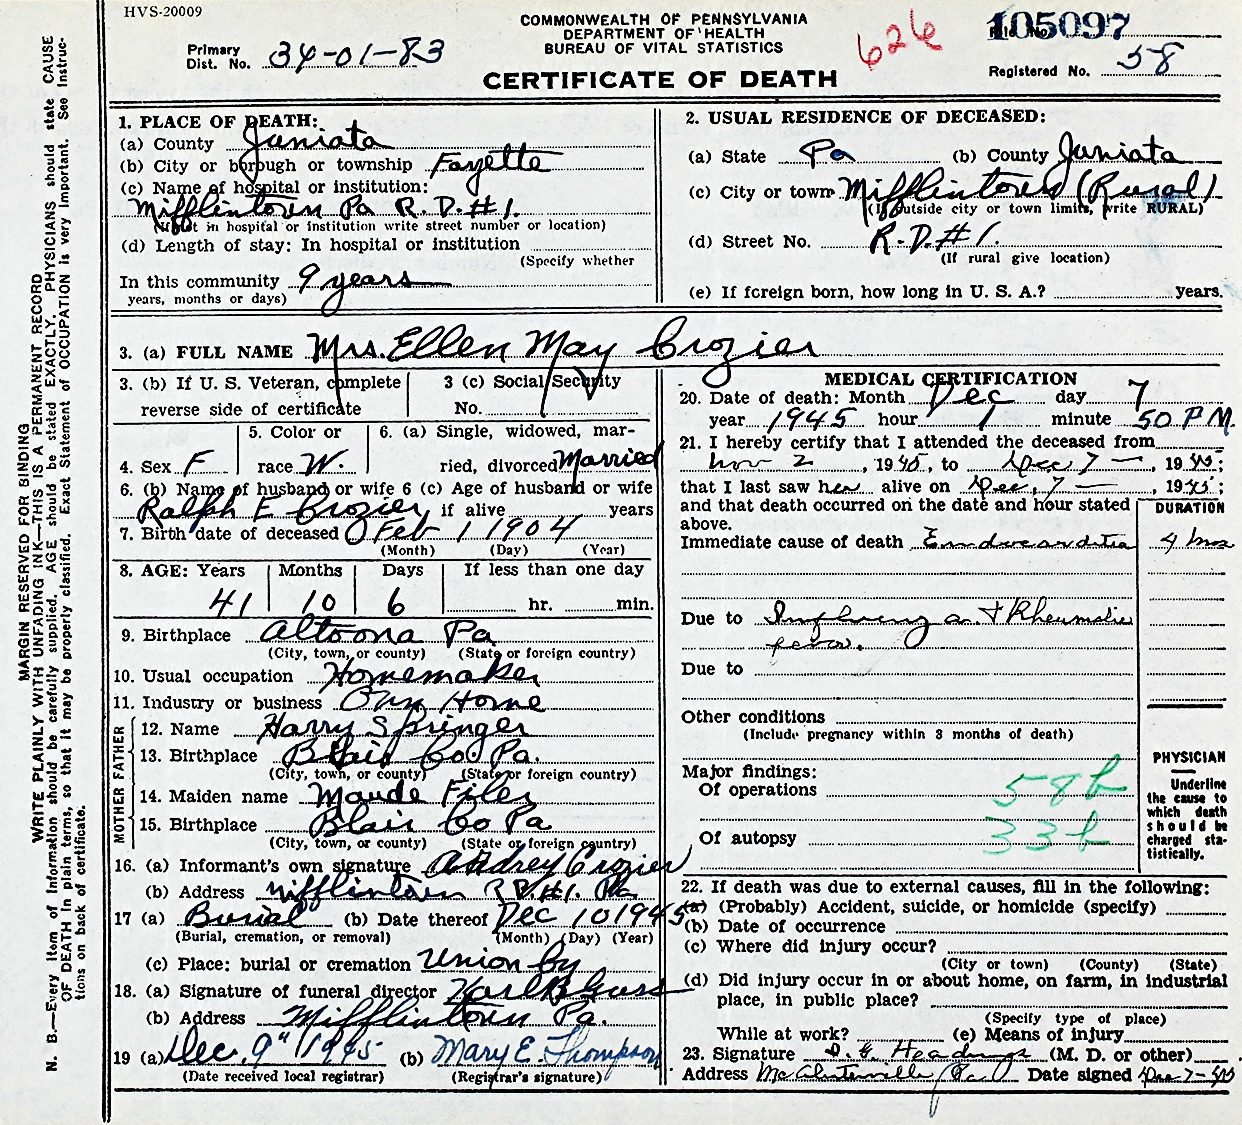 HVS-20009
COMMONWEALTH OF PENNSYLVANIA
DEPARTMENT OF HEALTH
BUREAU OF VITAL STATISTICS
CERTIFICATE OF DEATH
Primary Dist. No. 34-01-83
626
105097
Registered No. 58
MARGIN RESERVED FOR BINDING
WRITE PLAINLY WITH UNFADING INK—THIS IS A PERMANENT RECORD
N. B.—Every item of information should be carefully supplied. AGE should be stated EXACTLY. PHYSICIANS should state CAUSE
OF DEATH in plain terms, so that it may be properly classified. Exact Statement of OCCUPATION is very important. See Instruc-
tions on back of certificate.
1. PLACE OF DEATH:
(a) County Juniata
(b) City or borough or township Fayette
(c) Name of hospital or institution:
Mifflintown Pa R.D.#1.
(If not in hospital or institution write street number or location)
(d) Length of stay: In hospital or institution
(Specify whether
In this community 9 years
years, months or days)
2. USUAL RESIDENCE OF DECEASED:
(a) State Pa (b) County Juniata
(c) City or town Mifflintown (Rural)
(If outside city or town limits, write RURAL)
(d) Street No. R.D.#1.
(If rural give location)
(e) If foreign born, how long in U. S. A.? years.
3. (a) FULL NAME Mrs. Ellen May Crozier
3. (b) If U. S. Veteran, complete
reverse side of certificate
3 (c) Social Security
No.
4. Sex F
5. Color or
race W.
6. (a) Single, widowed, mar-
ried, divorced Married
6. (b) Name of husband or wife 6 (c) Age of husband or wife
Ralph E Crozier if alive years
7. Birth date of deceased Feb 1 1904
(Month) (Day) (Year)
8. AGE: Years Months Days If less than one day
41 10 6 hr. min.
9. Birthplace Altoona Pa
(City, town, or county) (State or foreign country)
10. Usual occupation Homemaker
11. Industry or business Own Home
FATHER
12. Name Harry Springer
13. Birthplace Blair Co. Pa.
(City, town, or county) (State or foreign country)
MOTHER
14. Maiden name Maude Files
15. Birthplace Blair Co Pa
(City, town, or county) (State or foreign country)
16. (a) Informant's own signature Audrey Crozier
(b) Address Mifflintown R.D.#1. Pa
17 (a) Burial (b) Date thereof Dec 10 1945
(Burial, cremation, or removal) (Month) (Day) (Year)
(c) Place: burial or cremation Union
18. (a) Signature of funeral director Karl B Guss
(b) Address Mifflintown Pa.
19 (a) Dec. 9" 1945 (b) Mary E. Thompson
(Date received local registrar) (Registrar's signature)
MEDICAL CERTIFICATION
20. Date of death: Month Dec day 7
year 1945 hour 1 minute 50 P M.
21. I hereby certify that I attended the deceased from
Nov 2, 1945, to Dec 7, 1945;
that I last saw her alive on Dec, 7, 1945;
and that death occurred on the date and hour stated
above.
DURATION
Immediate cause of death Endocarditis 4 mos
Due to & Rheumatic
fever.
Due to
Other conditions
(Include pregnancy within 3 months of death)
Major findings:
Of operations
58b
Of autopsy
33b
PHYSICIAN
Underline
the cause to
which death
should be
charged sta-
tistically.
22. If death was due to external causes, fill in the following:
(a) (Probably) Accident, suicide, or homicide (specify)
(b) Date of occurrence
(c) Where did injury occur?
(City or town) (County) (State)
(d) Did injury occur in or about home, on farm, in industrial
place, in public place?
(Specify type of place)
While at work? (e) Means of injury
23. Signature Headings (M. D. or other)
Address McAlisterville, Pa. Date signed Dec 7-45